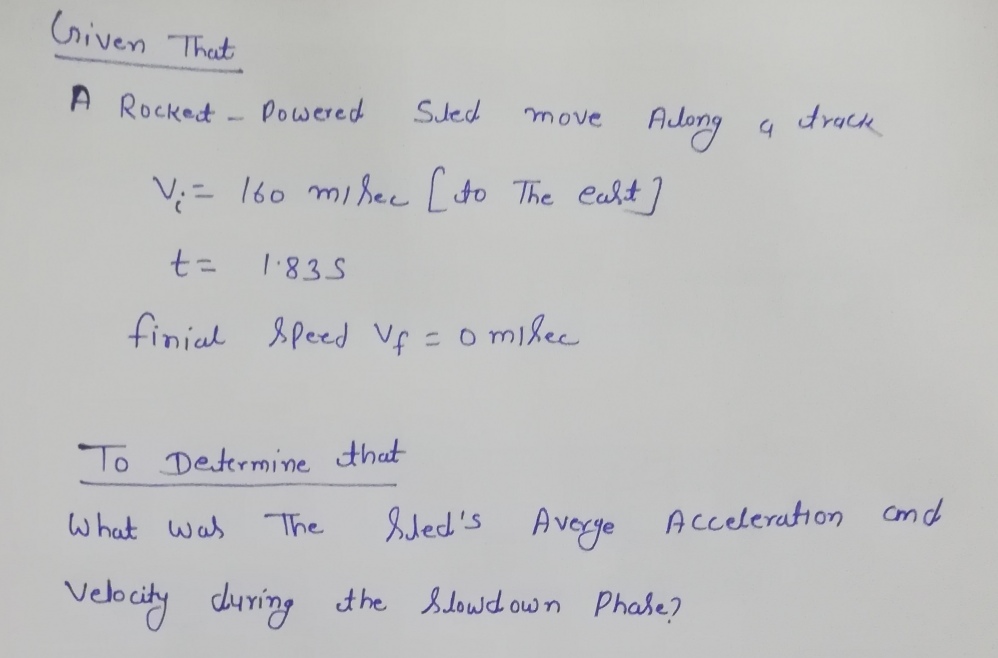 Given That
A Rocket - Powered Sled move Along a track
Vi = 160 m/sec [to The east]
t = 1.83 s
finial speed Vf = 0 m/sec
To Determine that
What was The Sled's Averge Acceleration and
Velocity during the slowdown Phase?